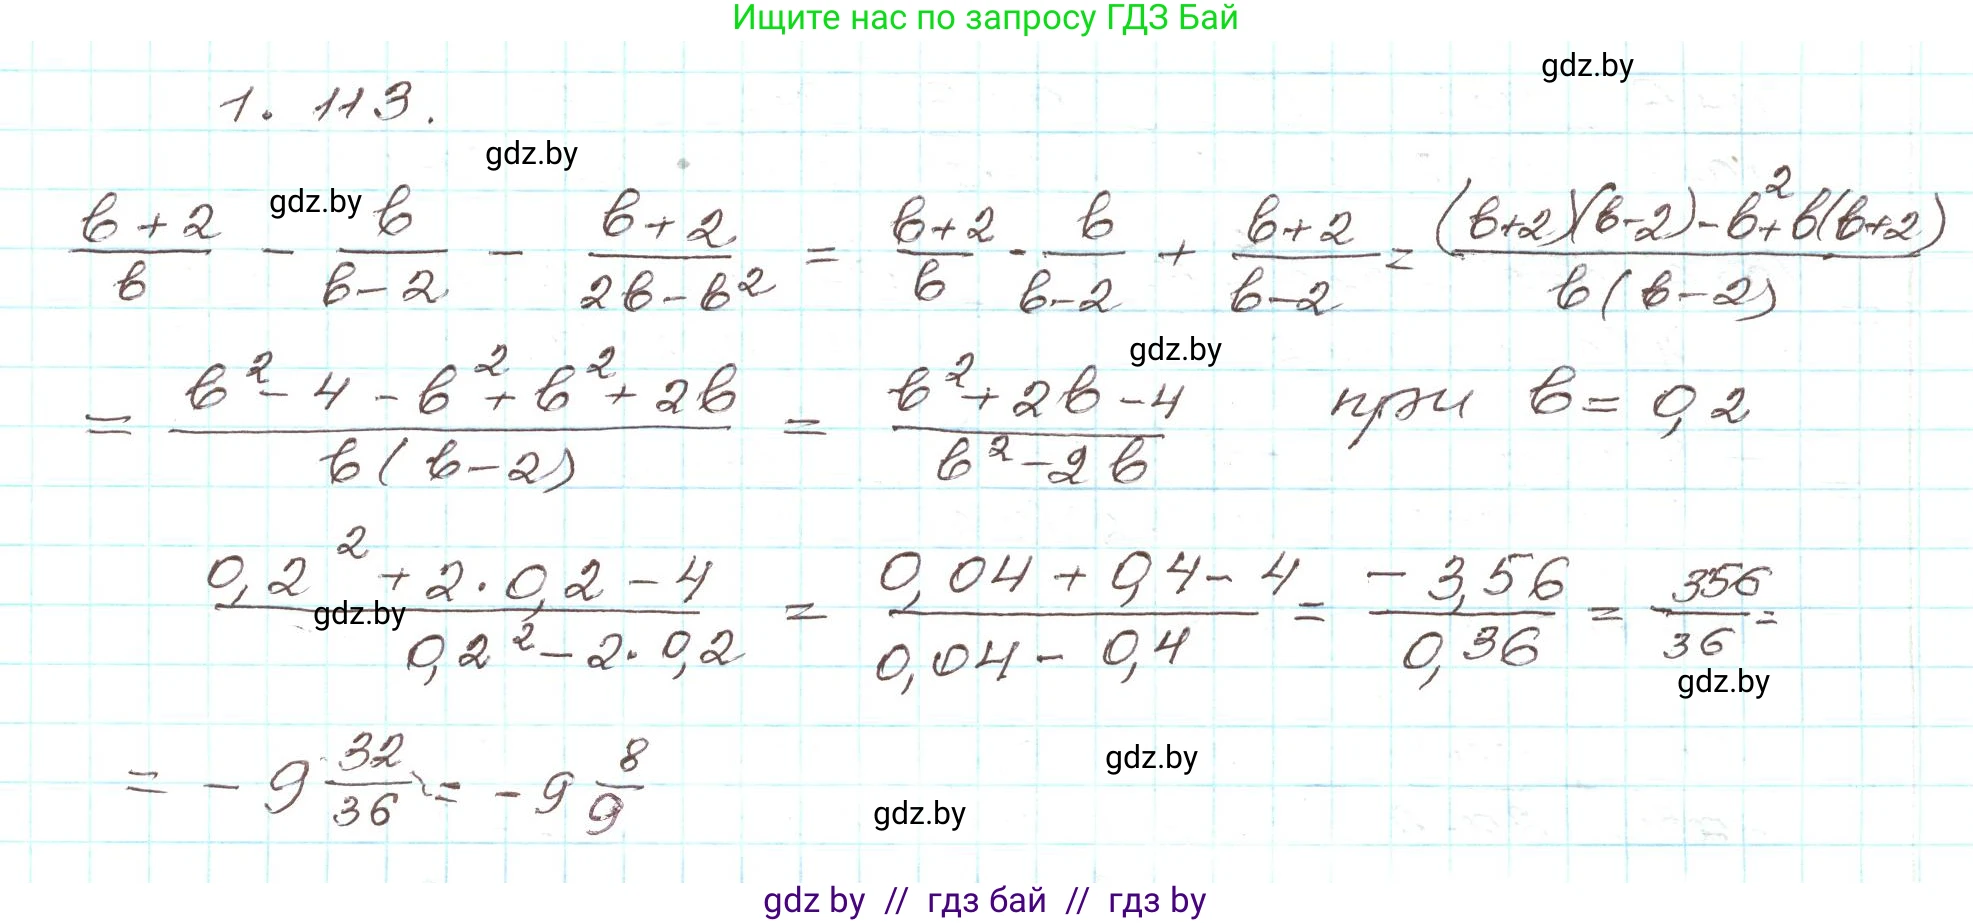 Ищите нас по запросу ГДЗ Бай
gdz.by
1. 113.
gdz.by
gdz.by
(b+2)/b - b/(b-2) - (b+2)/(2b-b²) = (b+2)/b - b/(b-2) + (b+2)/(b-2) = ((b+2)(b-2)-b²+b(b+2))/(b(b-2))
gdz.by
= (b²-4-b²+b²+2b)/(b(b-2)) = (b²+2b-4)/(b²-2b) при b=0,2
(0,2²+2·0,2-4)/(0,2²-2·0,2) = (0,04+0,4-4)/(0,04-0,4) = (-3,56)/(0,36) = -356/36 =
gdz.by
gdz.by
= -9 32/36 = -9 8/9
gdz.by
gdz.by
gdz by // гдз бай // гдз by